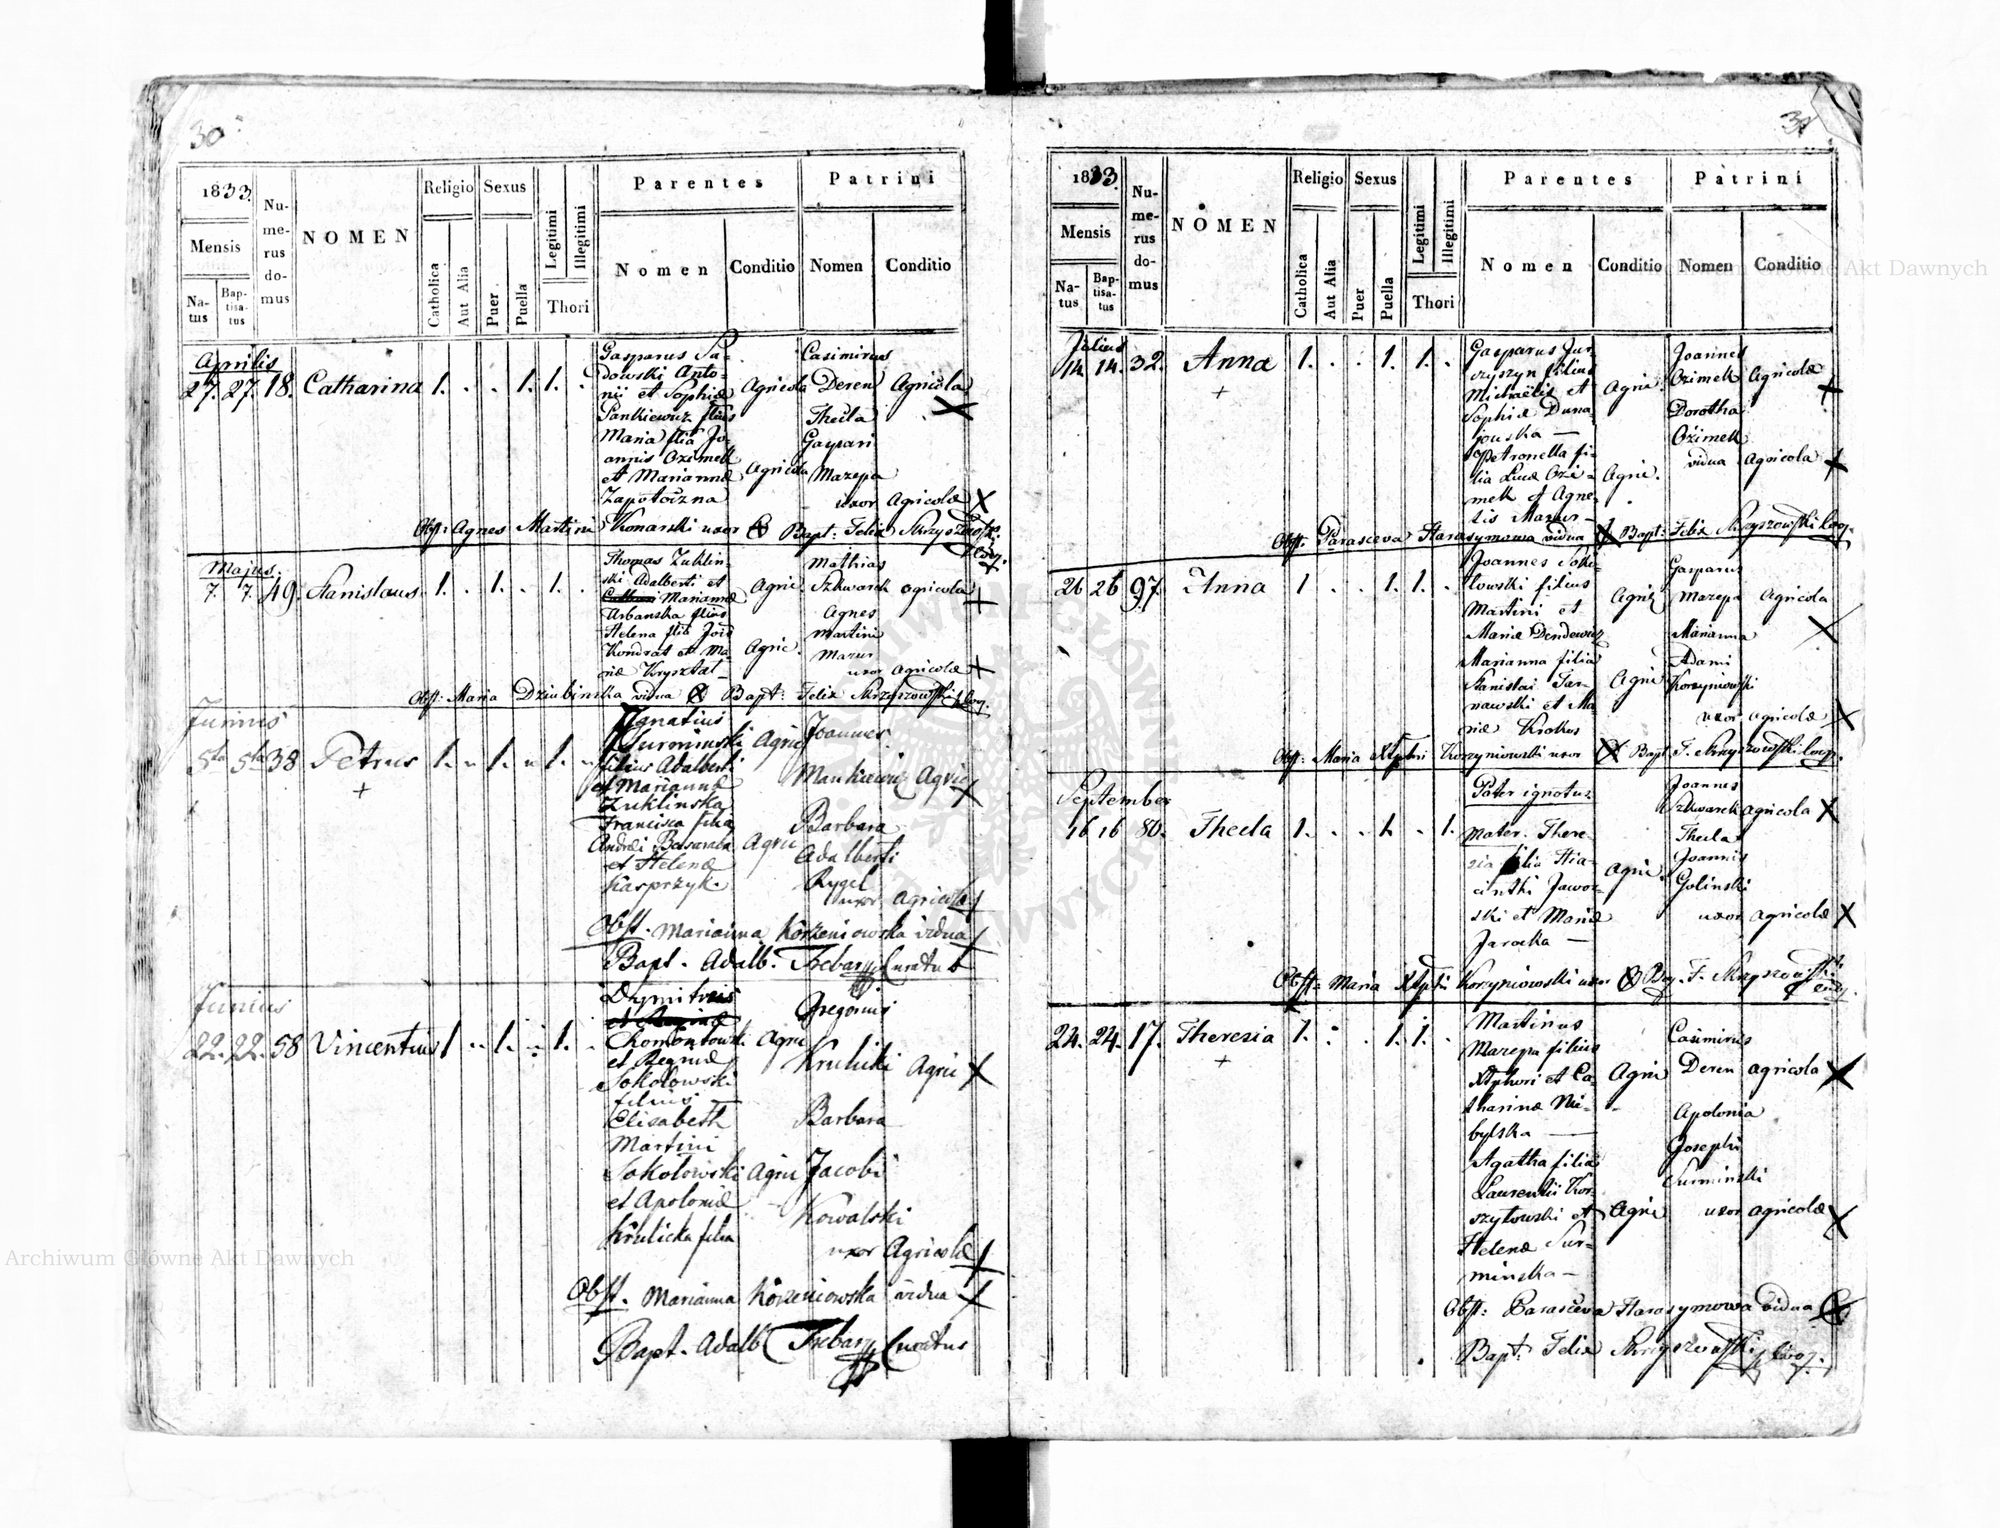 30
1833.
Mensis
Na-
tus
Bap-
tisa-
tus
Nu-
me-
rus
do-
mus
NOMEN
Religio
Catholica
Aut Alia
Sexus
Puer
Puella
Legitimi
Illegitimi
Thori
Parentes
Nomen
Conditio
Patrini
Nomen
Conditio
Aprilis
27. 27. 18. Catharina 1. . . 1. 1. .
Gasparus Sa-
dowski Anto-
nii et Sophiæ
Pankiewicz filius
Agricola
Maria filia Jo-
annis Ozimek
et Mariannæ
Zapotoczna
Agricola
Casimirus
Deren Agricola
Thecla
Gaspari
Mazepa
uxor Agricolæ
Obst: Agnes Martini Konarski uxor Bapt: Felix Skrzyszowski
Coop.
Majus.
7. 7. 49. Stanislaus. 1. . 1. . 1. .
Thomas Zuklin-
ski Adalberti et
Mariannæ
Arbanska filius
Agric.
Helena
Kondrat et Ma-
riæ Krysztal-
Agric.
Mathias
Szkwarek agricola
Agnes
Martini
Mazur
uxor agricolæ
Obst: Maria Dziubinska vidua Bapt: Felix Skrzyszowski Coop.
Junius
5ta 5ta 38 Petrus 1. 1. 1.
Ignatius
Surminski Agric
filius Adalberti
et Mariannæ
Zuklinska
Francisca filia
Andræi Basaraba Agric
et Helenæ
Kasprzyk.
Joannes
Mankiewicz Agric
Barbara
Adalberti
Rygel
uxor Agricolæ
Obst. Marianna Korzeniowska vidua
Bapt. Adalb. Trebacz Curatus
Junius
22. 22. 58 Vincentius 1 .. 1. 1. .
Dymitreis
Chomontowski Agric
et Reginæ
Sokolowski
filius
Elisabeth
Martini
Sokolowski Agric
et Apoloniæ
Krulicka filia
Gregorius
Krulicki Agric
Barbara
Jacobi
Kowalski
uxor Agricolæ
Obst. Marianna Korzeniowska vidua
Bapt. Adalb Trebacz Curatus
31
1833.
Mensis
Na-
tus
Bap-
tisa-
tus
Nu-
me-
rus
do-
mus
NOMEN
Religio
Catholica
Aut Alia
Sexus
Puer
Puella
Legitimi
Illegitimi
Thori
Parentes
Nomen
Conditio
Patrini
Nomen
Conditio
Julius
14. 14. 32. Anna 1. . . 1. 1. .
Gasparus Jur-
czyszyn filius
Michaëlis et
Sophiæ Duna-
jouska
Agric.
Petronella fi-
lia Lucæ Ozi-
mek et Agne-
tis Mazur-
Agric.
Joannes
Ozimek Agricola
Dorotha
Ozimek
vidua Agricola
Obst. Parasceva Harasymowa vidua Bapt: Felix Skrzyszowski Coop.
26 26 97. Anna 1 . . 1. 1. .
Joannes Soko-
lowski filius
Martini et
Mariæ Dendewicz
Agric
Marianna filia
Stanislai Tar-
nawski et Ma-
riæ Krokos
Agric
Gasparus
Mazepa Agricola
Marianna
Adami
Korzyniowski
uxor agricolæ
Obst: Maria Korzyniowski uxor Bapt. F. Skrzyszowski Coop.
September
16 16 80. Thecla 1. . . 1. . 1.
Pater ignotus
Mater. There
sia filia Hia-
cinthi Jawor-
ski et Mariæ
Jarocka
Agric.
Joannes
Szkwarek agricola
Thecla
Joannis
Golinski
uxor agricolæ
Obst: Maria Korzyniowski uxor F. Skrzyszowski
Coop.
24. 24. 17. Theresia 1. . . 1. 1. .
Martinus
Mazepa filius
et Ca-
tharinæ Nie-
bylska
Agric
Agatha filia
Laurentii Kor-
szytowski et
Helenæ Sur-
minska
Agric
Casimirus
Deren agricola
Apolonia
Josephi
Surminski
uxor agricolæ
Obst: Parasceva Harasymowa vidua
Bapt: Felix Skrzyszowski Coop.
Archiwum Główne Akt Dawnych
Archiwum Główne Akt Dawnych